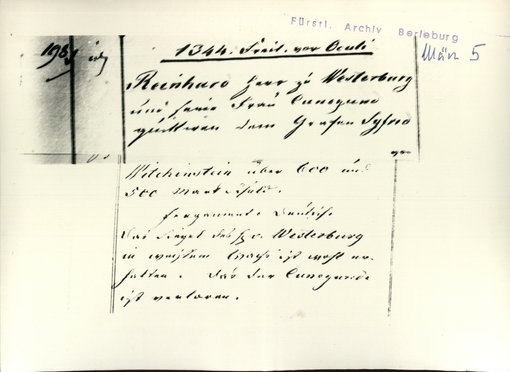 Fürstl. Archiv Berleburg
März 5
1344. Freit. vor Oculi
Reinhard Herr zu Westerburg
und seine Frau Cunegund
quittiren dem Grafen Syfrid
von
Witchenstein über 600 und
500 Mark Geld.
Pergament. Deutsch.
Das Siegel des H. v. Westerburg
in weissem Wachs ist wohl er-
halten. Das der Cunegunde
ist verloren.